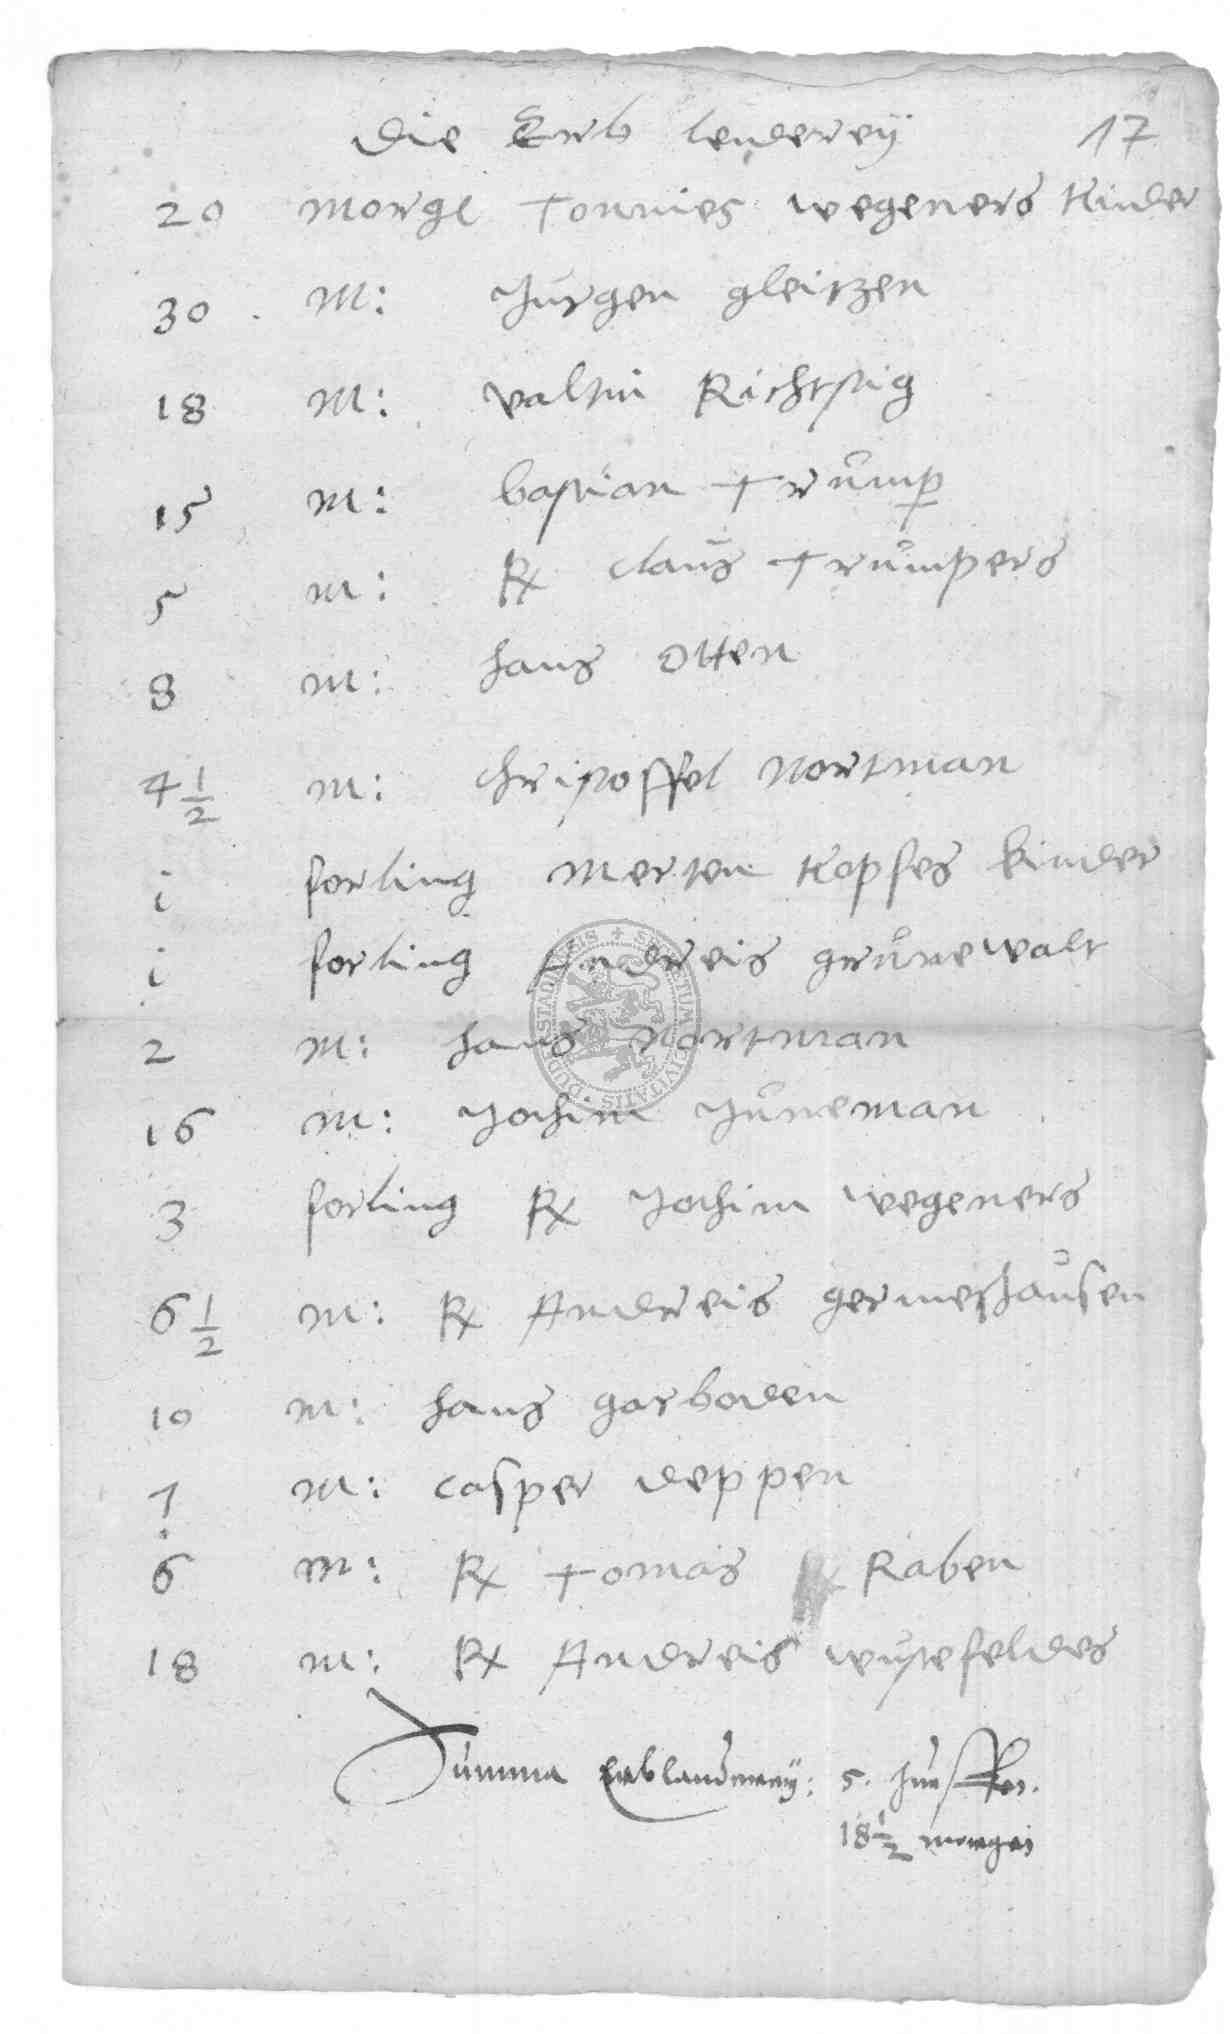 Die Erb lenderey 17
20 Morge Tonnies wegeners Kinder
30 M: Jurgen gleitzen
18 M: Valtin Richtstig
15 M: bastian Trump
5 M: R claus Trumpers
8 M: hans Otten
4 1/2 M: Christoffel Nortman
i forling Merten Kopfes kinder
i forling Andreis grunewalt
2 M: hans Nortman
16 M: Jochim Juneman
3 forling R Jochim wegeners
6 1/2 M: R Andreis germeshausen
10 M: hans garboden
7 M: Casper deppen
6 M: R Tomas Raben
18 M: R Andreis wustefeldes
Summa Erblanderey: 5. huffen.
18 1/2 morgen
SECRETUM CIVITATIS DUDERSTADIENSIS